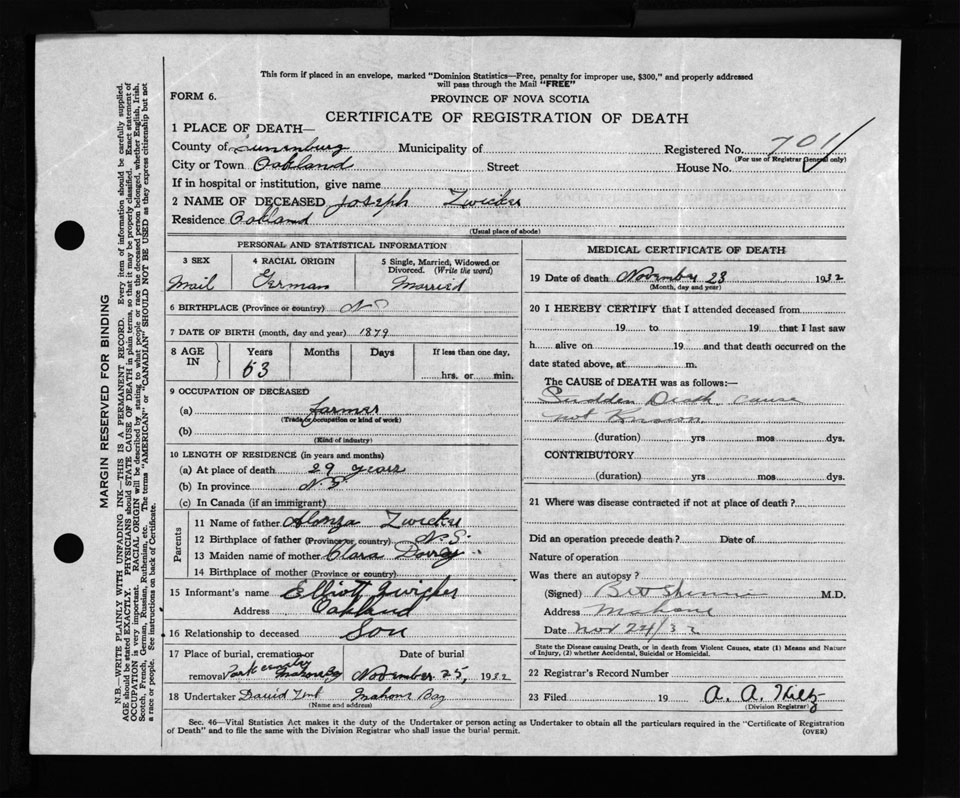 This form if placed in an envelope, marked "Dominion Statistics—Free, penalty for improper use, $300," and properly addressed
will pass through the Mail "FREE"
FORM 6.
PROVINCE OF NOVA SCOTIA
CERTIFICATE OF REGISTRATION OF DEATH
1 PLACE OF DEATH—
County of Lunenburg Municipality of Registered No. 701
(For use of Registrar General only)
City or Town Oakland Street House No.
If in hospital or institution, give name
2 NAME OF DECEASED Joseph Zwicker
Residence Oakland
(Usual place of abode)
PERSONAL AND STATISTICAL INFORMATION
3 SEX 4 RACIAL ORIGIN 5 Single, Married, Widowed or
Divorced. (Write the word)
Mail German Married
6 BIRTHPLACE (Province or country) N S
7 DATE OF BIRTH (month, day and year) 1879
8 AGE IN Years Months Days If less than one day,
53 hrs. or min.
9 OCCUPATION OF DECEASED
(a) farmer
(Trade occupation or kind of work)
(b)
(Kind of industry)
10 LENGTH OF RESIDENCE (in years and months)
(a) At place of death 29 years
(b) In province N S
(c) In Canada (if an immigrant)
Parents
11 Name of father Alonza Zwicker
12 Birthplace of father (Province or country) N.S.
13 Maiden name of mother Clara
14 Birthplace of mother (Province or country)
15 Informant's name Elliott Zwicker
Address Oakland
16 Relationship to deceased Son
17 Place of burial, cremation or Date of burial
removal Park Mahone Bay November 25, 1932
18 Undertaker David Mahone Bay
(Name and address)
MEDICAL CERTIFICATE OF DEATH
19 Date of death November 23 1932
(Month, day and year)
20 I HEREBY CERTIFY that I attended deceased from
19 to 19 that I last saw
h alive on 19 and that death occurred on the
date stated above, at m.
The CAUSE of DEATH was as follows:—
Sudden Death cause
not Known
(duration) yrs mos dys.
CONTRIBUTORY
(duration) yrs mos dys.
21 Where was disease contracted if not at place of death?
Did an operation precede death? Date of
Nature of operation
Was there an autopsy?
(Signed) M.D.
Address Mahone
Date Nov 24/32
State the Disease causing Death, or in death from Violent Causes, state (1) Means and Nature
of Injury, (2) whether Accidental, Suicidal or Homicidal.
22 Registrar's Record Number
23 Filed 19 A. A.
(Division Registrar)
Sec. 46—Vital Statistics Act makes it the duty of the Undertaker or person acting as Undertaker to obtain all the particulars required in the "Certificate of Registration
of Death" and to file the same with the Division Registrar who shall issue the burial permit.
(OVER)
MARGIN RESERVED FOR BINDING
N.B.—WRITE PLAINLY WITH UNFADING INK—THIS IS A PERMANENT RECORD. Every item of information should be carefully supplied.
AGE should be stated EXACTLY. PHYSICIANS should STATE CAUSE OF DEATH in plain terms, so that it may be properly classified. Exact statement of
OCCUPATION is very important. RACIAL ORIGIN will be described by stating to what people or race the deceased person belonged, whether English, Irish,
Scotch, French, German, Russian, Ruthenian, etc. The terms "AMERICAN" or "CANADIAN" SHOULD NOT BE USED as they express citizenship but not
a race or people. See instructions on back of Certificate.